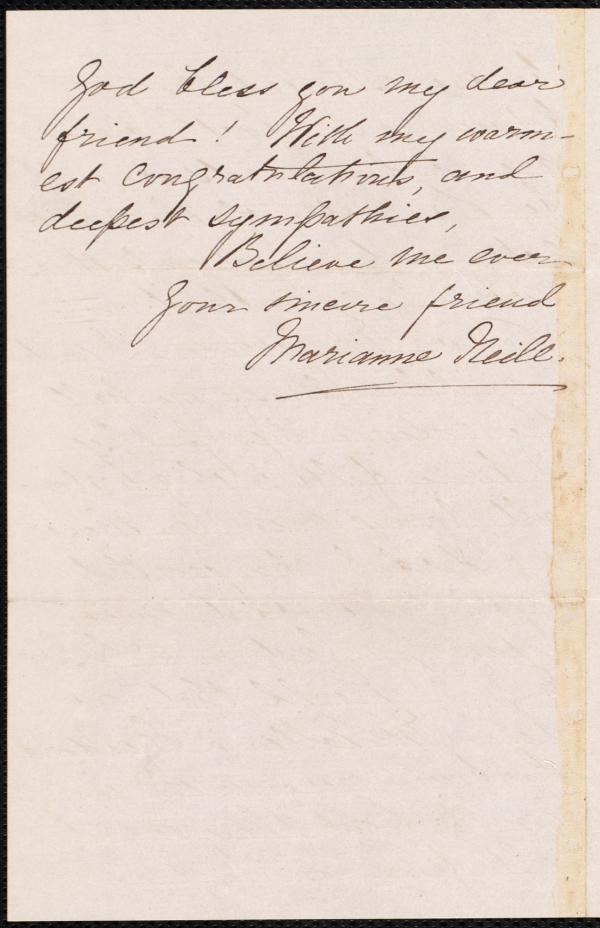 God bless you my dear
friend! With my warm-
est congratulations, and
deepest sympathies,
Believe me ever
Your sincere friend
Marianne Neill.